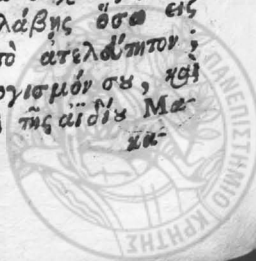 λάβης ὅσα εἰς
τὸ ἀτελεύτητον;
ογισμόν σου, καὶ
τῆς αἰδίου Μα-
κα-
ΠΑΝΕΠΙΣΤΗΜΙΟ ΚΡΗΤΗΣ